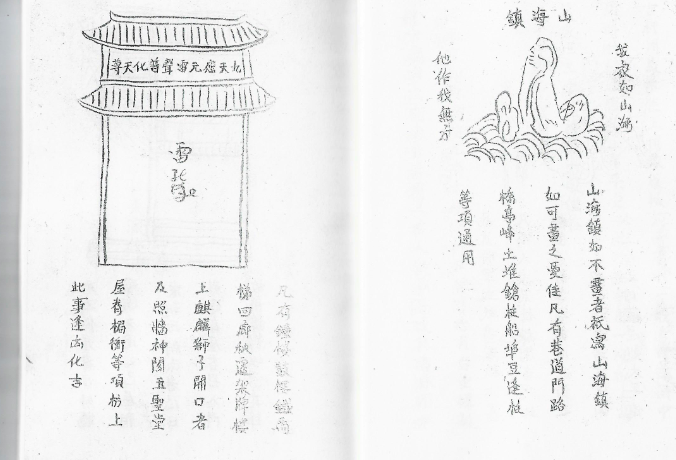 山海鎮
家如山海
他作我無方
山海鎮如不畫者祇寫山海鎮
如可畫之更佳凡有巷道門路
橋亭峰土堆鎗柱船埠豆逢柱
等項通用
九天應元雷聲普化天尊
凡有鐘樓鼓樓
梯回廊秋遷架牌樓
上麒麟獅子開口者
及照牆神閣五聖堂
屋脊楣衝等項枋上
此事逢凶化吉